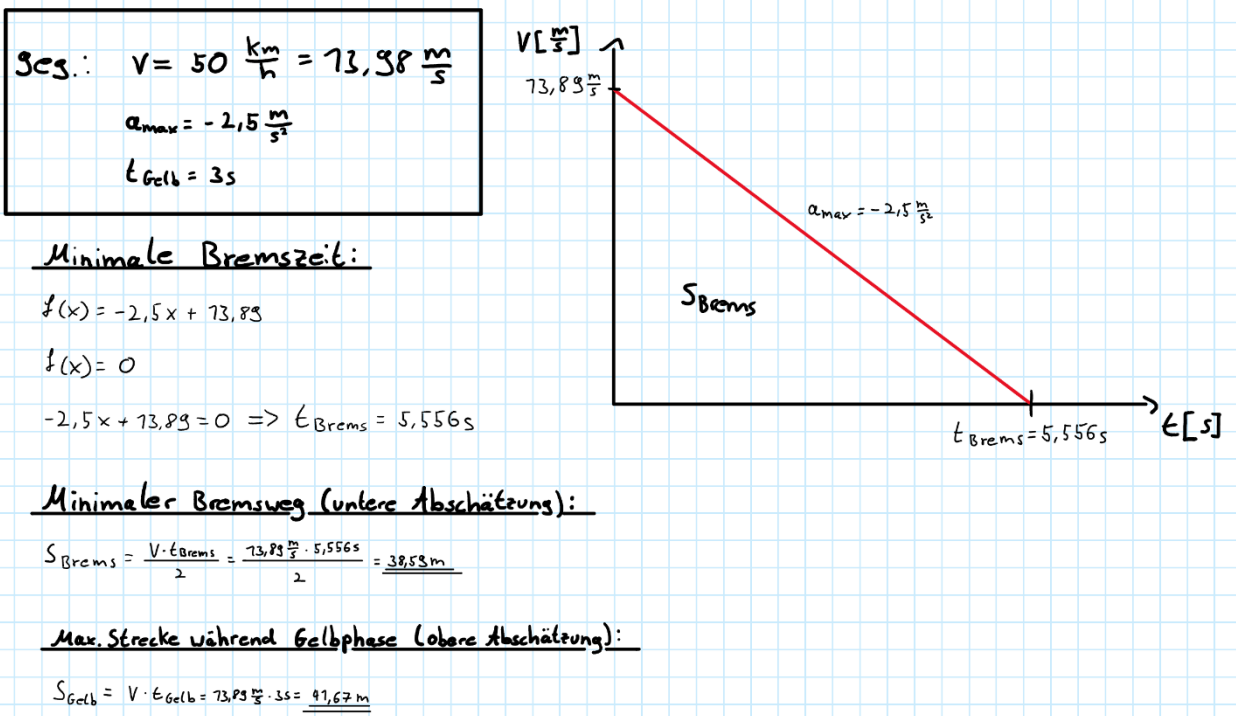 geg.: V = 50 km/h = 13,98 m/s
a_max = -2,5 m/s²
t_Gelb = 3s
Minimale Bremszeit:
f(x) = -2,5x + 13,89
f(x) = 0
-2,5x + 13,89 = 0 => t_Brems = 5,556s
Minimaler Bremsweg (untere Abschätzung):
S_Brems = V·t_Brems/2 = 13,89 m/s · 5,556s/2 = 38,59m
Max. Strecke während Gelbphase (obere Abschätzung):
S_Gelb = V·t_Gelb = 13,89 m/s · 3s = 41,67 m
V[m/s]
13,89 m/s
a_max = -2,5 m/s²
S_Brems
t_Brems = 5,556s
t[s]